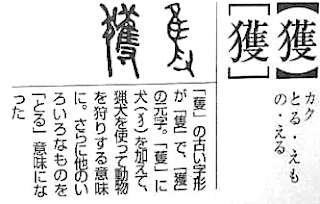 【獲】
[獲]
カク
とる・えも
の・える
「蒦」の古い字形
が「隻」で、「獲」
の元字。「蒦」に
犬(犭)を加えて、
猟犬を使って動物
を狩りする意味
に。さらに他のい
ろいろなものを
「とる」意味にな
った